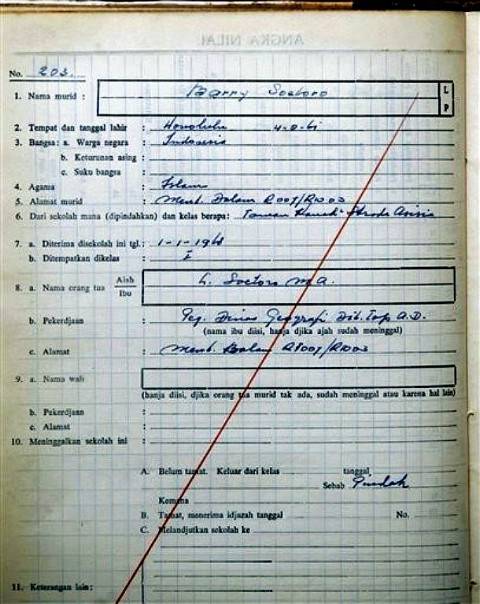 ANGKA NILAI
No. 203.
1. Nama murid : Barry Soetoro L P
2. Tempat dan tanggal lahir : Honolulu 4-8-61
3. Bangsa: a. Warga negara : Indonesia
b. Keturunan asing :
c. Suku bangsa :
4. Agama : Islam
5. Alamat murid : Ment. Dalam R007/R003
6. Dari sekolah mana (dipindahkan) dan kelas berapa: Strada Asisia
7. a. Diterima disekolah ini tgl.: 1-1-1968
b. Ditempatkan dikelas : I
8. a. Nama orang tua Ajah Ibu : L. Soetoro M.A.
b. Pekerdjaan : Peg. Dinas Geografi Dit. Top. A.D.
(nama ibu diisi, hanja djika ajah sudah meninggal)
c. Alamat : Ment. Dalam R007/R003
9. a. Nama wali :
(hanja diisi, djika orang tua murid tak ada, sudah meninggal atau karena hal lain)
b. Pekerdjaan :
c. Alamat :
10. Meninggalkan sekolah ini :
A. Belum tamat. Keluar dari kelas tanggal
Sebab Pindah
Kemana
B. Tamat, menerima idjazah tanggal No.
C. Melandjutkan sekolah ke
11. Keterangan lain: